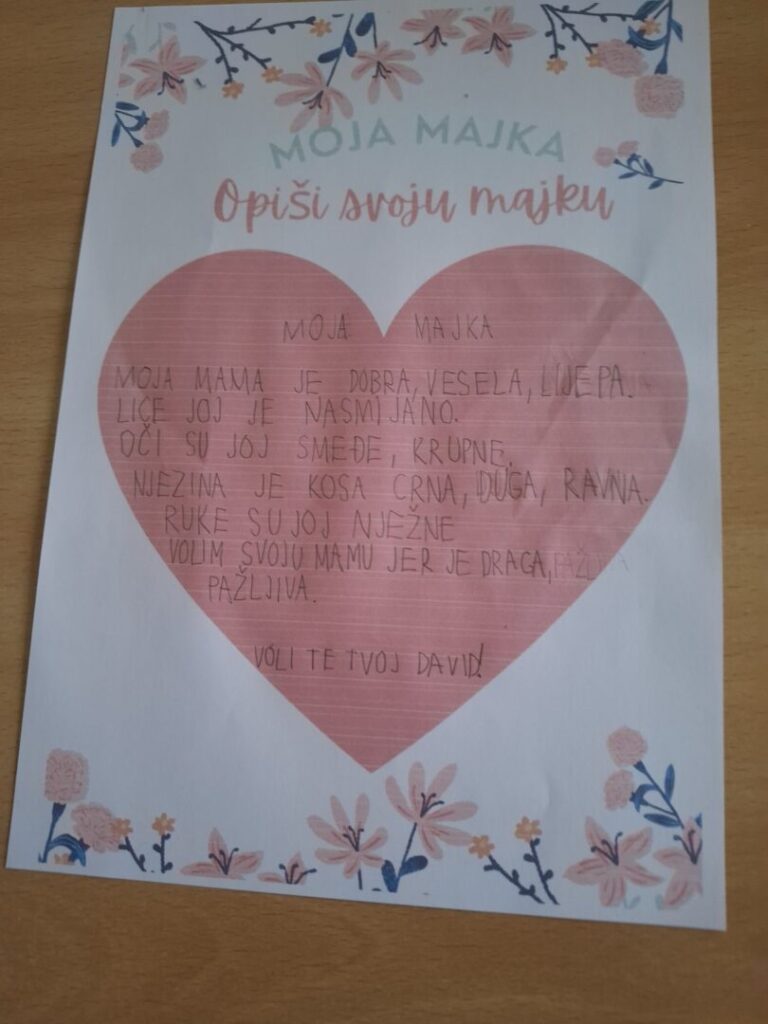 MOJA MAJKA
Opiši svoju majku
MOJA MAJKA
MOJA MAMA JE DOBRA, VESELA, LIJEPA.
LICE JOJ JE NASMIJANO.
OČI SU JOJ SMEĐE, KRUPNE.
NJEZINA JE KOSA CRNA, DUGA, RAVNA.
RUKE SU JOJ NJEŽNE
VOLIM SVOJU MAMU JER JE DRAGA,
PAŽLJIVA.
VOLI TE TVOJ DAVID!